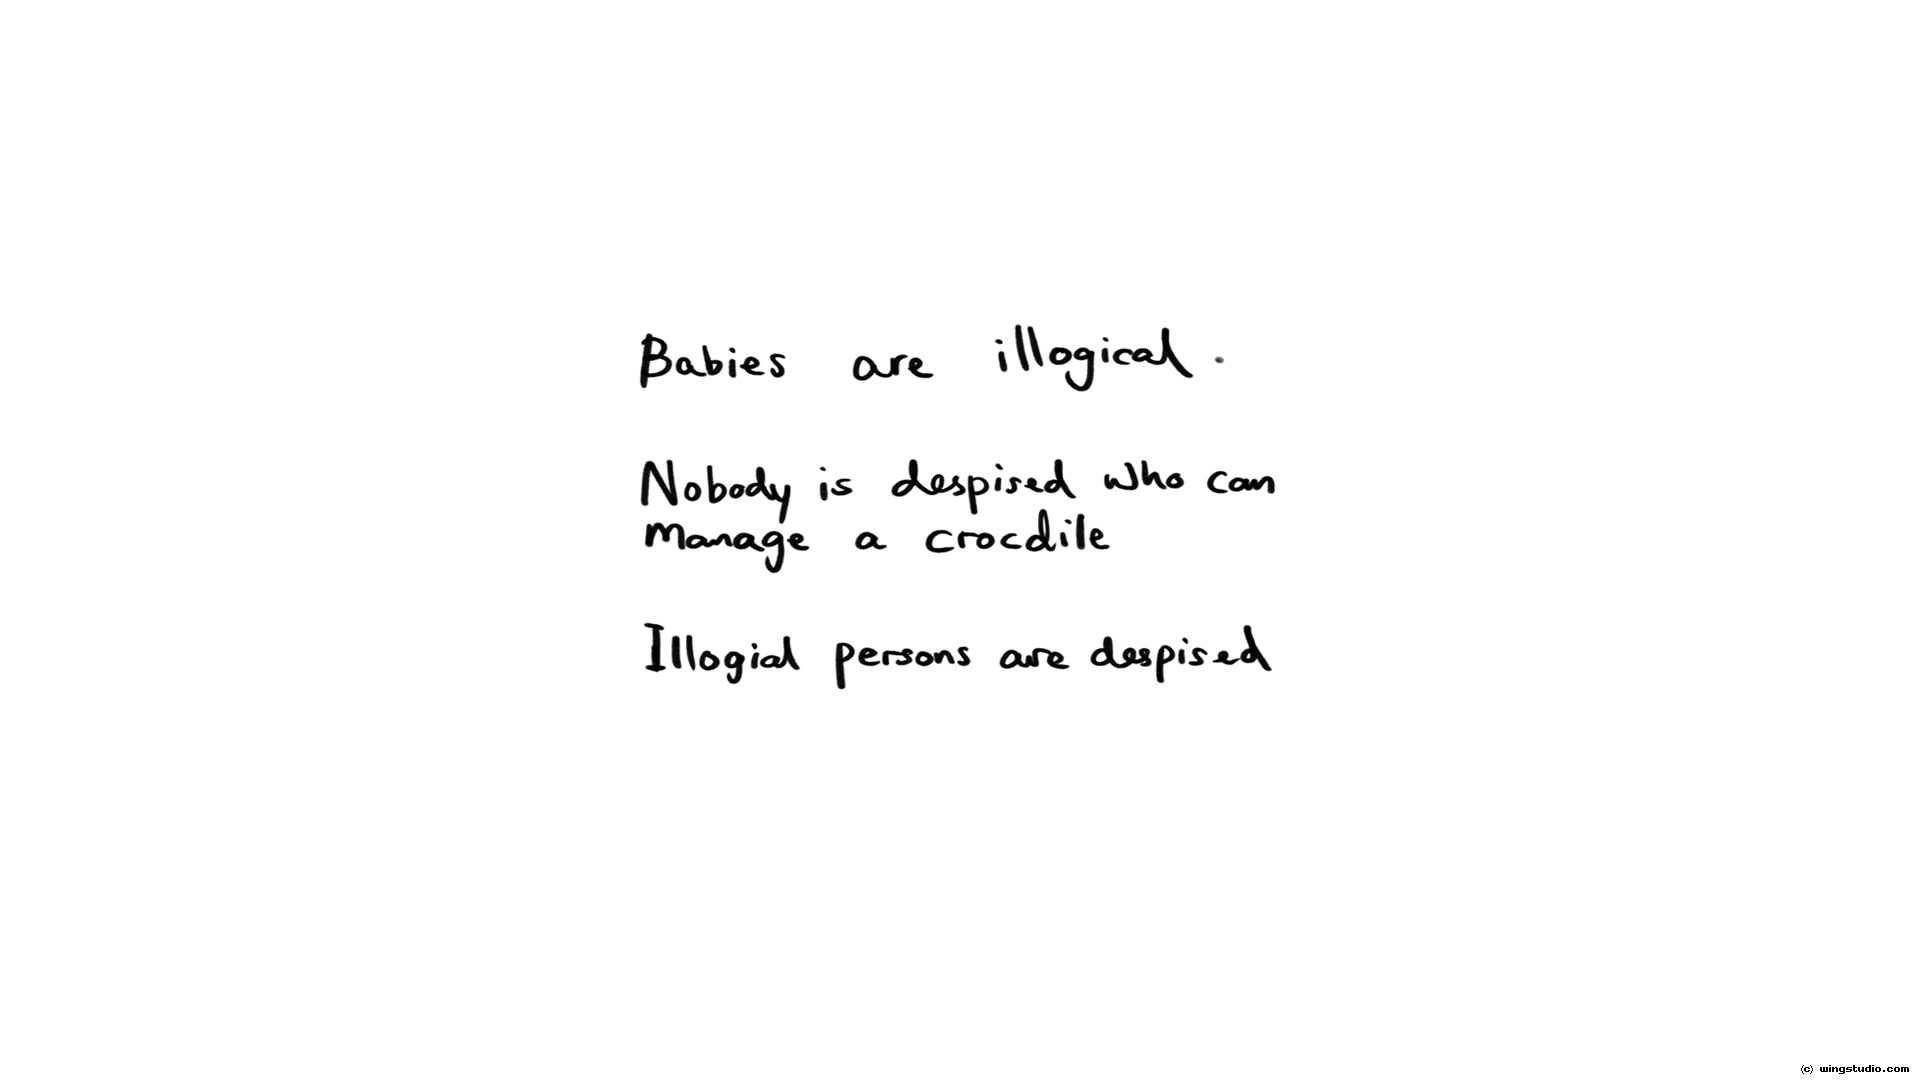 Babies are illogical.
Nobody is despised who can
manage a crocdile
Illogial persons are despised
(c) wingstudio.com